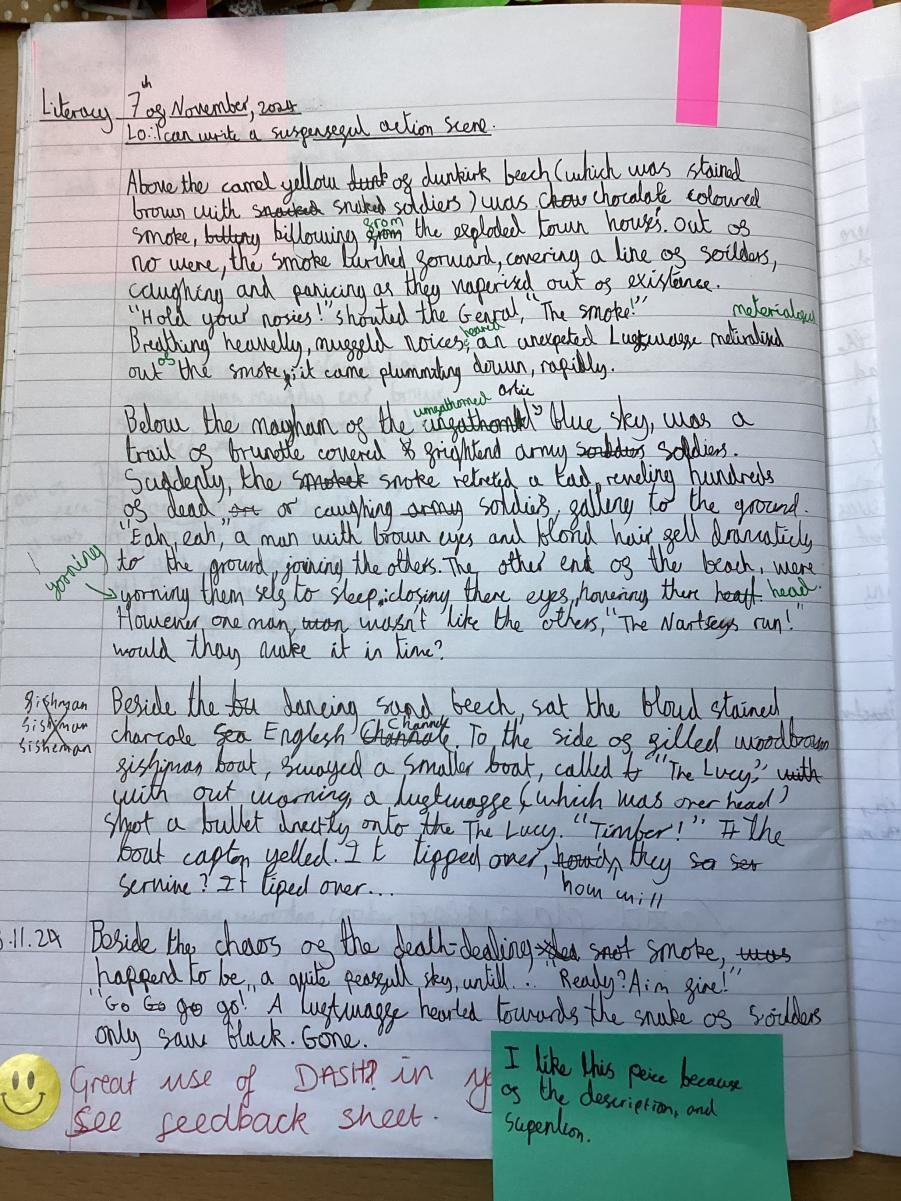 Literacy 7th of November, 2024
LO: I can write a suspenseful action scene.
Above the camel yellow dunk of dunkirk beech (which was stained
brown with snaked soldiers) was chow chocolate coloured
smoke, billowing from from the exploded town house's. Out of
no were, the smoke lurched forward, covering a line of soilders,
caughing and panicing as they vaperised out of existence.
"Hold your nosies!" shouted the Genral, "The smoke!"
meterialogused
Breathing heavelly, muffeld voices heared, an unexpeted Luftwaffe
out of the smoke, it came plummating down, rapidly.
unfathomed artic
Below the mayham of the blue sky, was a
trail of brunette covered & frightend army soldiers.
Suddenly, the smoke retreted a tad, reveling hundreds
of dead or caughing army soldies, falling to the ground.
"Eah, eah", a man with brown eyes and blond hair fell dramaticly
to the ground, joining the others. The other end of the beach, were
yorning
yorning them selfs to sleep, closing there eyes, hovering there head.
However one man, wasn't like the others, "The Nartseys run!"
would thay make it in time?
fishman
fishman
fisheman
Beside the dancing sand beech, sat the bloud stained
charcole Sea English Channel. To the side of filled woodbrown
fishman boat, swayed a smaller boat, called "The Lucy", with
with out warning, a luftwaffe (which was over head)
shot a bullet directly onto the The Lucy. "Timber!" the
bout capton yelled. It tipped over, how will they
servive? It tiped over...
.11.24
Beside the chaos of the death-dealing snot smoke, was
happend to be, a quite peasfull sky, untill... "Ready? Aim fire!"
"Go Go go go!" A luftwaffe hearled towards the snake of soilders
only saw black. Gone.
Great use of DASH? in
See feedback sheet.
I like this peice because
of the description, and